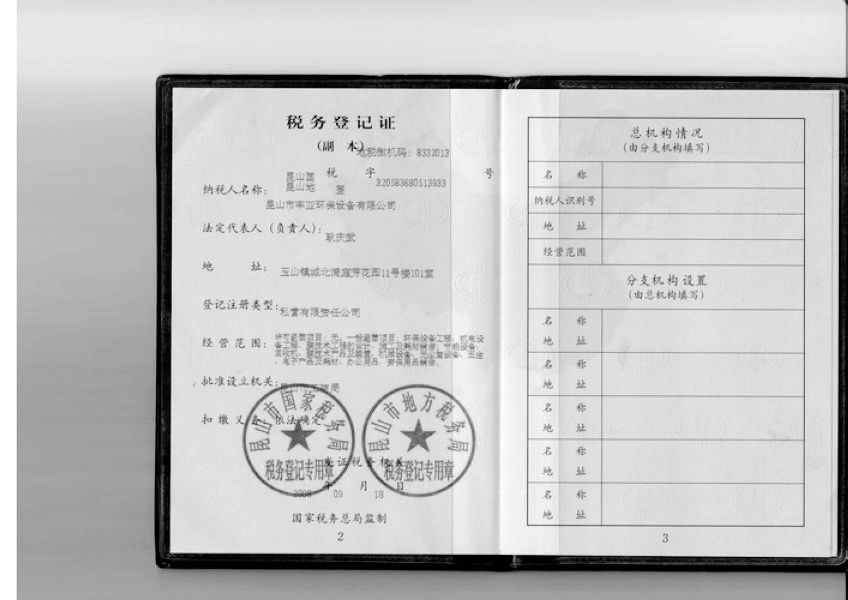 税务登记证
(副 本)
地税微机码：8332013
昆山国 税 字 号
昆山地 登 320583680513933
纳税人名称：
昆山市丰亚环保设备有限公司
法定代表人（负责人）：
耿庆武
地 址：玉山镇城北漪庭芳花园11号楼101室
登记注册类型：私营有限责任公司
经 营 范 围：许可经营项目：无。一般经营项目：环保设备工程、机电设
批准设立机关：
扣 缴 义 务：依法确定
昆山市国家税务局
税务登记专用章
昆山市地方税务局
税务登记专用章
发证税务机关
2008 年 09 月 18 日
国家税务总局监制
2
总机构情况
(由分支机构填写)
名 称
纳税人识别号
地 址
经营范围
分支机构设置
(由总机构填写)
名 称
地 址
名 称
地 址
名 称
地 址
名 称
地 址
名 称
地 址
3